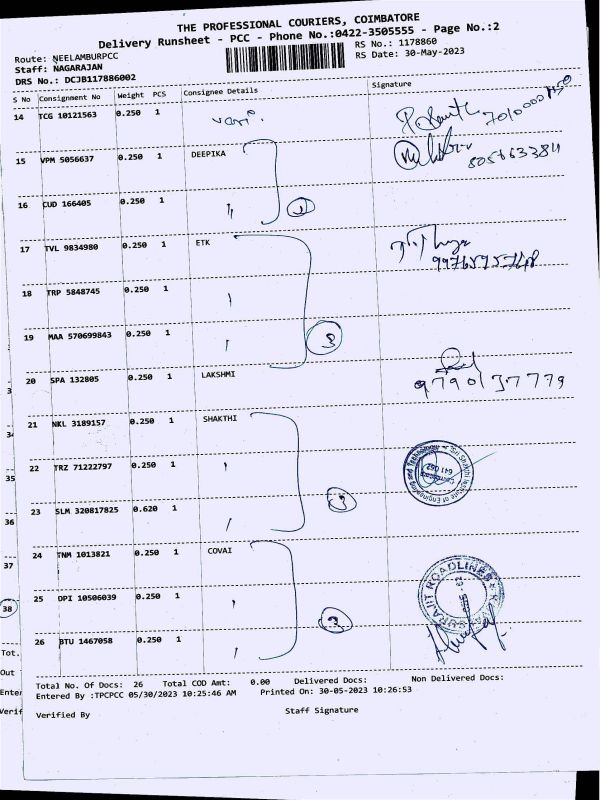 THE PROFESSIONAL COURIERS, COIMBATORE
Delivery Runsheet - PCC - Phone No.:0422-3505555 - Page No.:2
Route: NEELAMBURPCC
RS No.: 1178860
Staff: NAGARAJAN
RS Date: 30-May-2023
DRS No.: DCJB117886002
S No Consignment No Weight PCS Consignee Details Signature
14 TCG 10121563 0.250 1
15 VPM 5056637 0.250 1 DEEPIKA
8056633811
16 CUD 166405 0.250 1 " 2
17 TVL 9834980 0.250 1 ETK
18 TRP 5848745 0.250 1 "
19 MAA 570699843 0.250 1 " 3
20 SPA 132805 0.250 1 LAKSHMI
9790137779
21 NKL 3189157 0.250 1 SHAKTHI
22 TRZ 71222797 0.250 1 "
23 SLM 320817825 0.620 1 " 3
24 TNM 1013821 0.250 1 COVAI
25 DPI 10506039 0.250 1 "
26 BTU 1467058 0.250 1 "
Total No. Of Docs: 26 Total COD Amt: 0.00 Delivered Docs: Non Delivered Docs:
Entered By :TPCPCC 05/30/2023 10:25:46 AM Printed On: 30-05-2023 10:26:53
Verified By Staff Signature
35
36
37
38
Tot.
Out
Enter
Verif